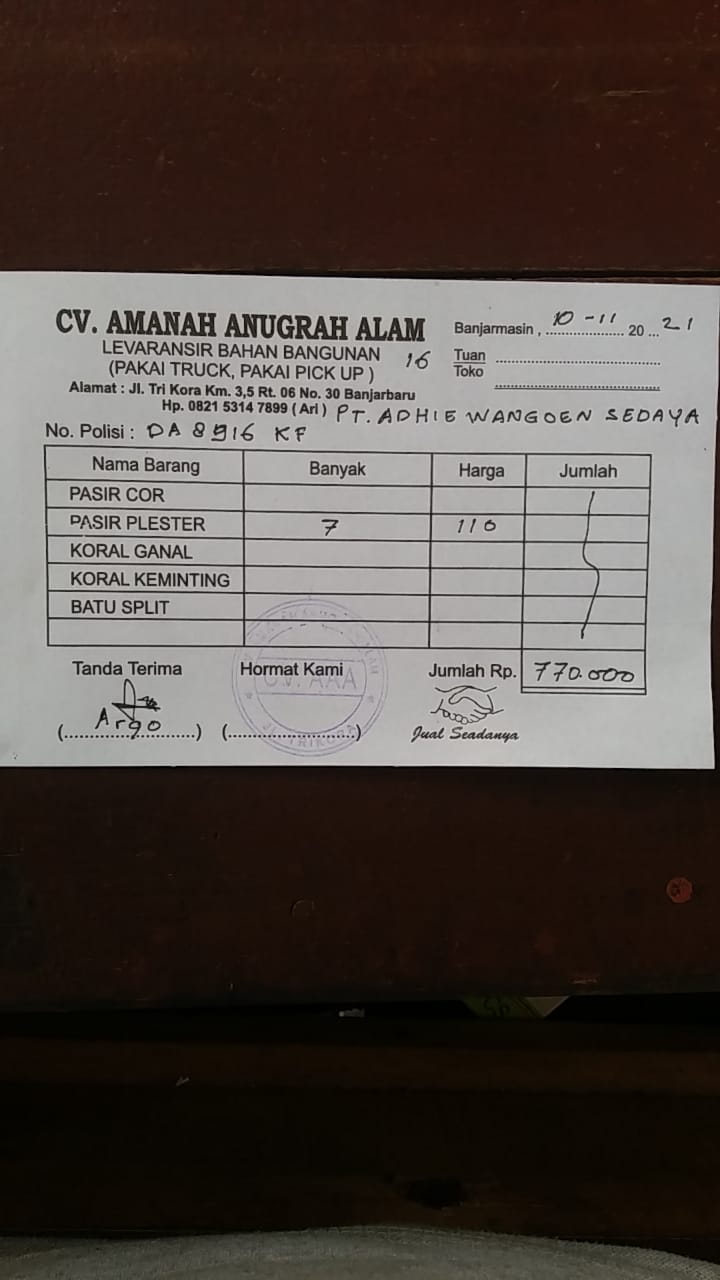 CV. AMANAH ANUGRAH ALAM
LEVARANSIR BAHAN BANGUNAN
(PAKAI TRUCK, PAKAI PICK UP )
Alamat : Jl. Tri Kora Km. 3,5 Rt. 06 No. 30 Banjarbaru
Hp. 0821 5314 7899 ( Ari )
16
Banjarmasin , 10 - 11 20 ... 21
Tuan
Toko
PT. ADHIE WANGOEN SEDAYA
No. Polisi : DA 8916 KF
Nama Barang Banyak Harga Jumlah
PASIR COR
PASIR PLESTER 7 110
KORAL GANAL
KORAL KEMINTING
BATU SPLIT
Tanda Terima Hormat Kami Jumlah Rp. 770.000
CV. AAA
JL. TRIKORA
(Argo) (....................)
Jual Seadanya